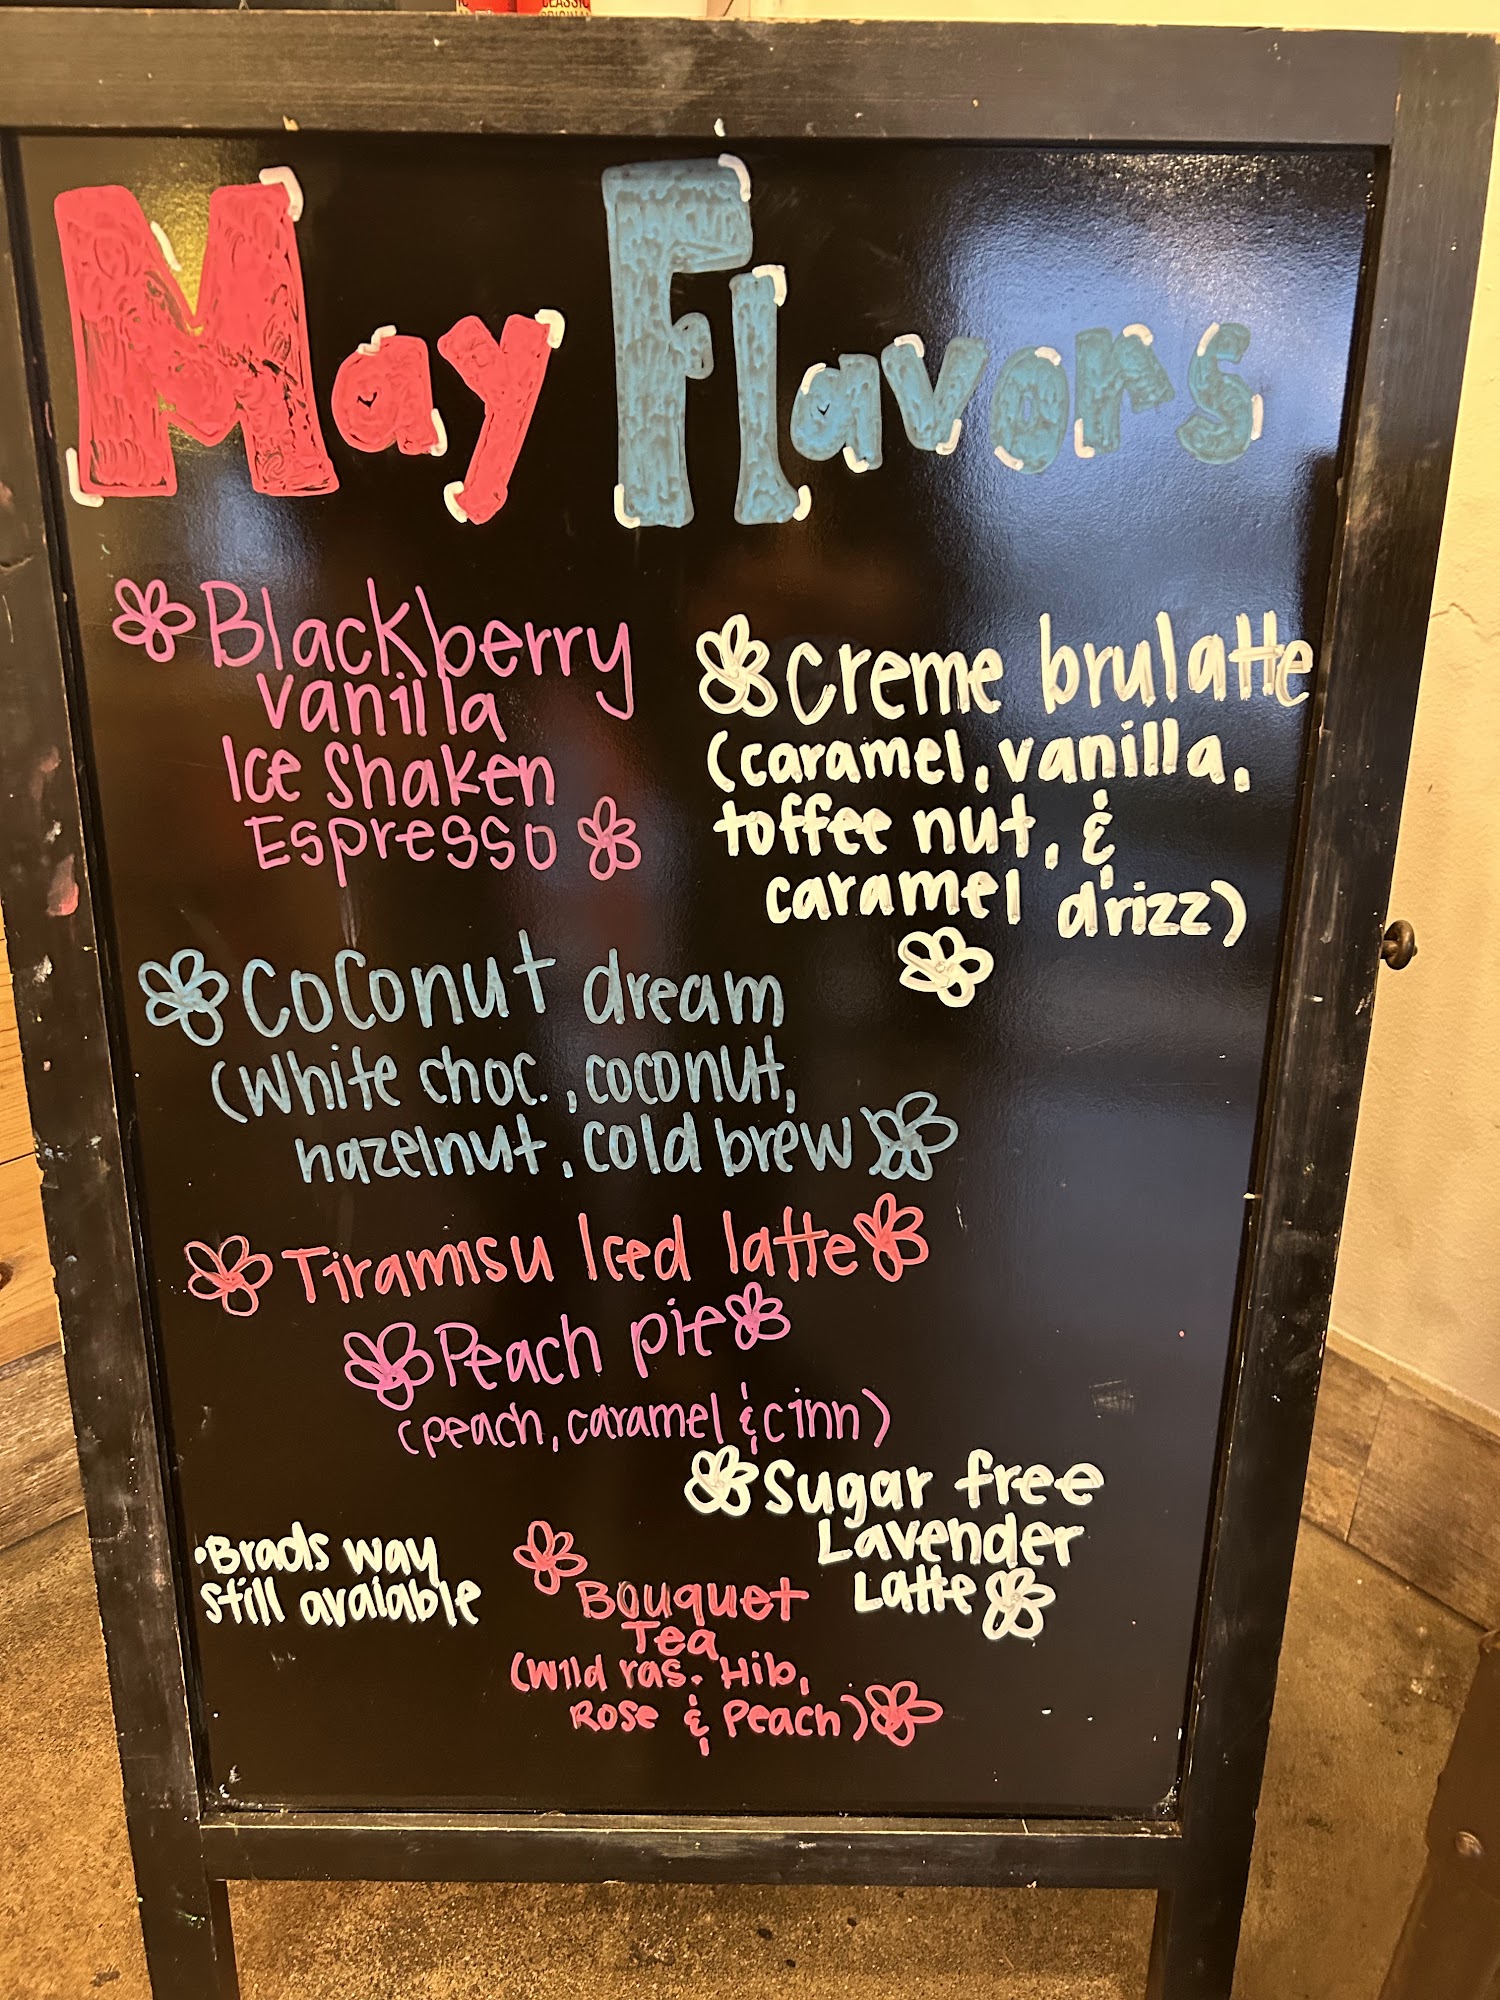 CLASSIC
ORIGINAL
May Flavors
Blackberry
vanilla
Ice Shaken
Espresso
Creme brulatte
(caramel, vanilla,
toffee nut, &
caramel drizz)
Coconut dream
(White choc., coconut,
hazelnut, cold brew)
Tiramisu Iced latte
Peach pie
(peach, caramel & cinn)
Sugar free
Lavender
Latte
•Brads way
still avaiable
Bouquet
Tea
(Wild ras. Hib,
Rose & Peach)